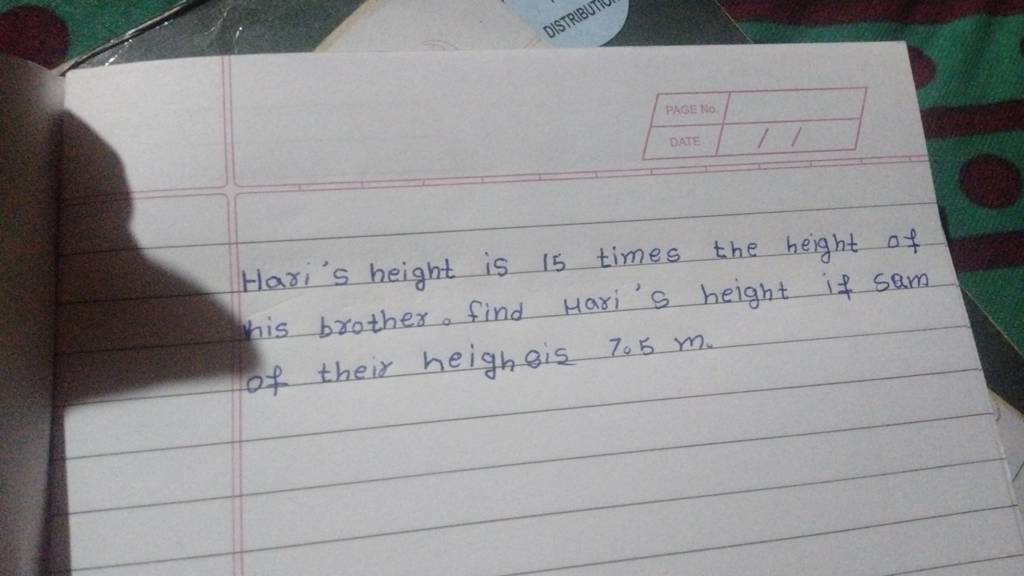 DISTRIBUTION
PAGE No.
DATE / /
Hari's height is 15 times the height of
his brother. find Hari's height if sum
of their heighois 7.5 m.